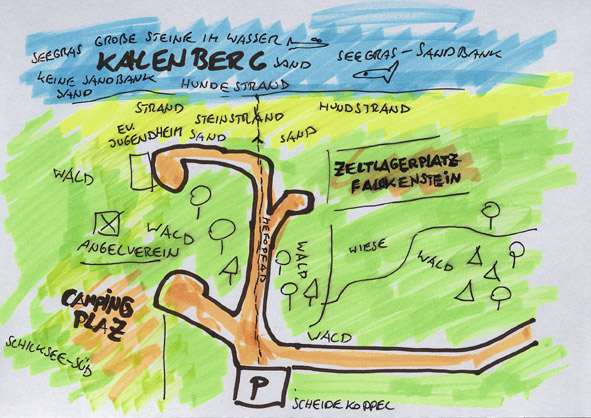 SEEGRAS GROßE STEINE IM WASSER
KALENBERG SAND
SEEGRAS-SANDBANK
KEINE SANDBANK
SAND
HUNDESTRAND
STRAND
STEINSTRAND
HUNDSTRAND
EV.
JUGENDHEIM SAND
SAND
WALD
ZELTLAGERPLATZ
FALCKENSTEIN
WALD
ANGELVEREIN
WALD
WIESE
WALD
CAMPING
PLAZ
WALD
SCHICKSEE-SÜD
P
SCHEIDEKOPPEL